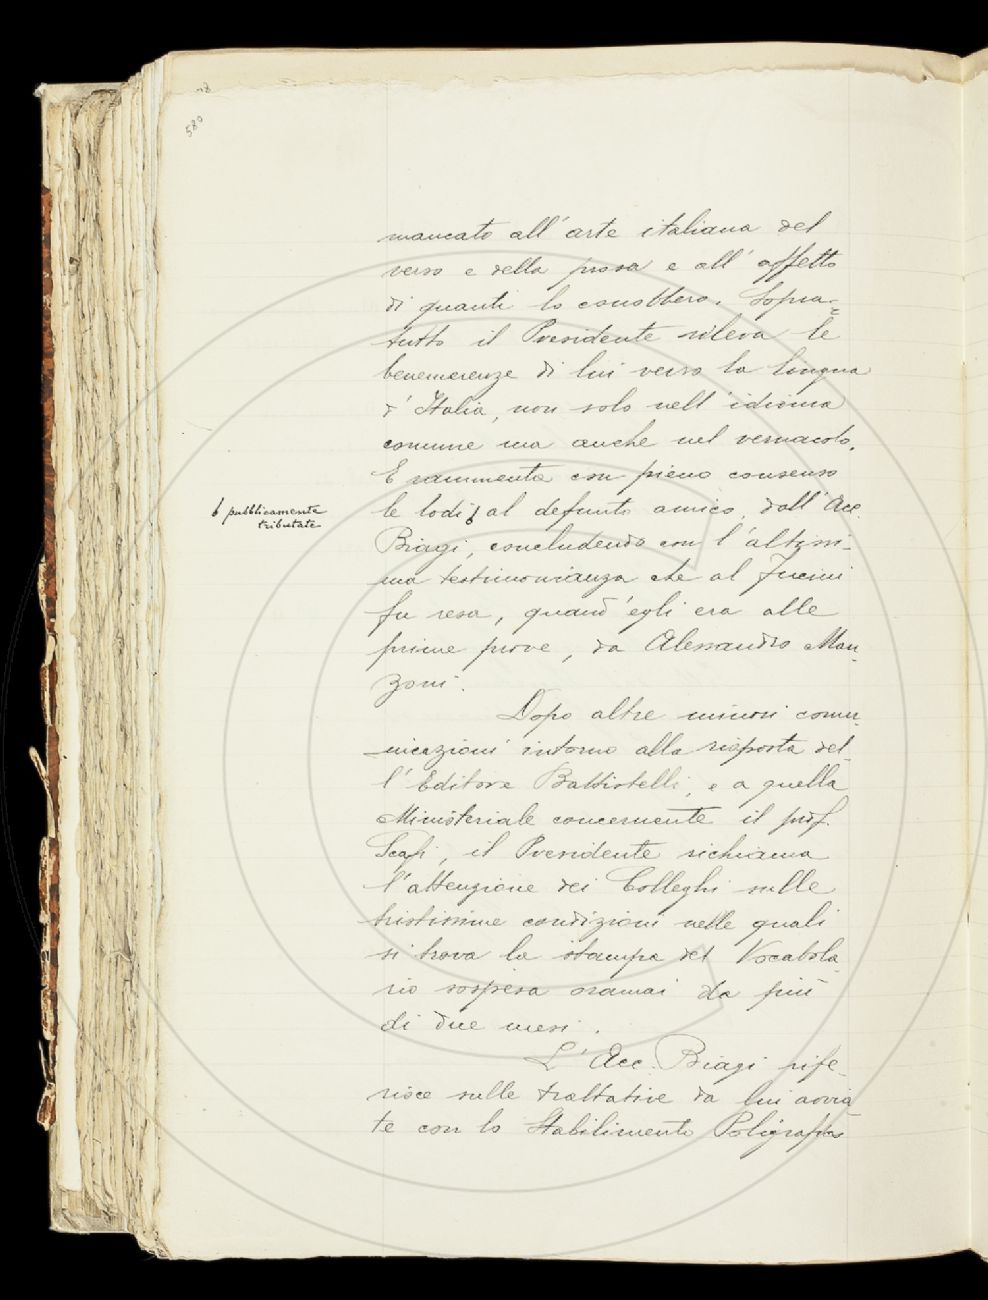 580
mancato all'arte italiana del
verso e della prosa e all'affetto
di quanti lo conobbero. Sopra=
tutto il Presidente rileva le
benemerenze di lui verso la lingua
d'Italia, non solo nell'idioma
comune ma anche nel vernacolo.
E rammenta con pieno consenso
le lodi al defunto amico, dall'Acc.
pubblicamente
tributate
Biagi, concludendo con l'altissi-
ma testimonianza che al Fucini
fu resa, quand'egli era alle
prime prove, da Alessandro Man-
zoni.
Dopo altre minori comu-
nicazioni intorno alla risposta del-
l'Editore Battistelli, e a quella
Ministeriale concernente il prof.
Scafi, il Presidente richiama
l'attenzione dei Colleghi sulle
tristissime condizioni nelle quali
si trova la stampa del Vocabola-
rio sospesa oramai da più
di due mesi.
L'Acc. Biagi rife-
risce sulle trattative da lui avvia-
te con lo Stabilimento Poligrafico